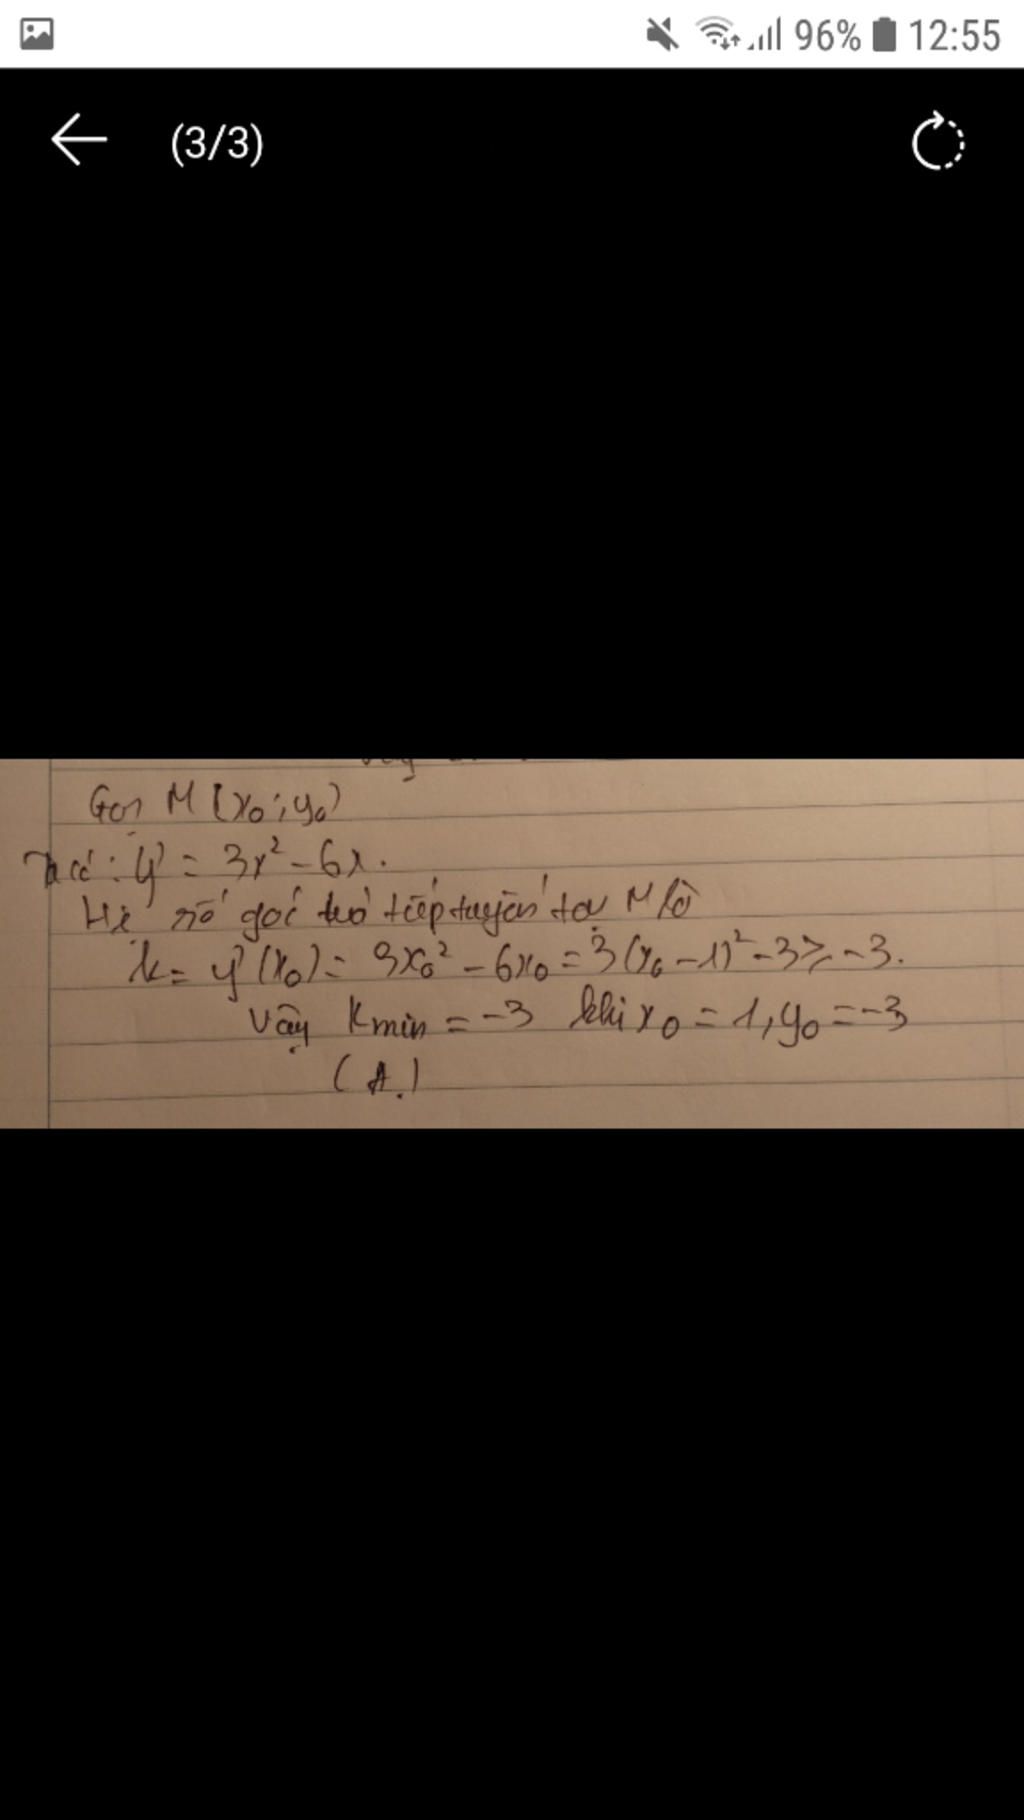 96% 12:55
(3/3)
Gọi M (x₀; y₀)
Ta có: y' = 3x² - 6x.
Hệ số góc của tiếp tuyến tại M là
k = y'(x₀) = 3x₀² - 6x₀ = 3(x₀ - 1)² - 3 ≥ -3.
Vậy kmin = -3 khi x₀ = 1, y₀ = -3
(A.)